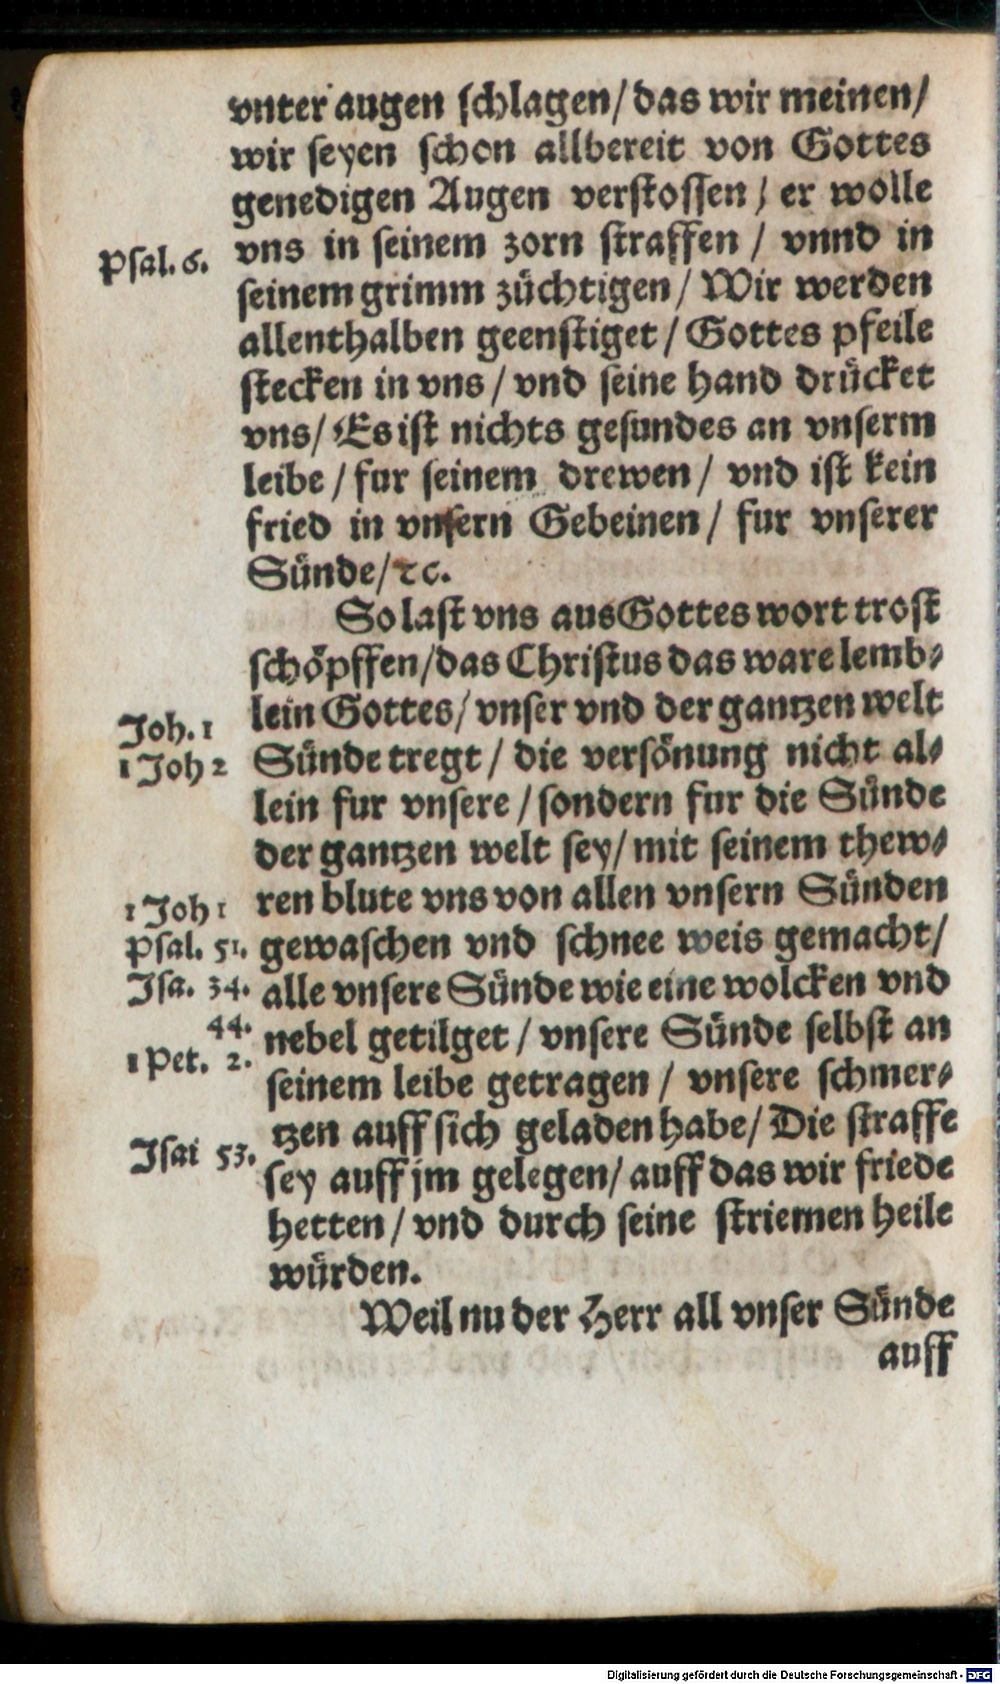 vnter augen schlagen/das wir meinen/
wir seyen schon allbereit von Gottes
genedigen Augen verstossen/ er wolle
Psal. 6.
vns in seinem zorn straffen / vnnd in
seinem grimm züchtigen/ Wir werden
allenthalben geenstiget / Gottes pfeile
stecken in vns / vnd seine hand drücket
vns/ Es ist nichts gesundes an vnserm
leibe / fur seinem drewen / vnd ist kein
fried in vnsern Gebeinen / fur vnserer
Sünde/ꝛc.
So last vns aus Gottes wort trost
schöpffen/das Christus das ware lemb⸗
Joh. 1
lein Gottes/ vnser vnd der gantzen welt
1 Joh 2
Sünde tregt / die versönung nicht al⸗
lein fur vnsere / sondern fur die Sünde
der gantzen welt sey/ mit seinem thew⸗
1 Joh 1
ren blute vns von allen vnsern Sünden
Psal. 51.
gewaschen vnd schnee weis gemacht/
Isa. 34.
alle vnsere Sünde wie eine wolcken vnd
44.
nebel getilget / vnsere Sünde selbst an
1 Pet. 2.
seinem leibe getragen / vnsere schmer⸗
tzen auff sich geladen habe/ Die straffe
Isai 53.
sey auff jm gelegen/ auff das wir friede
hetten / vnd durch seine striemen heile
würden.
Weil nu der Herr all vnser Sünde
auff
Digitalisierung gefördert durch die Deutsche Forschungsgemeinschaft - DFG